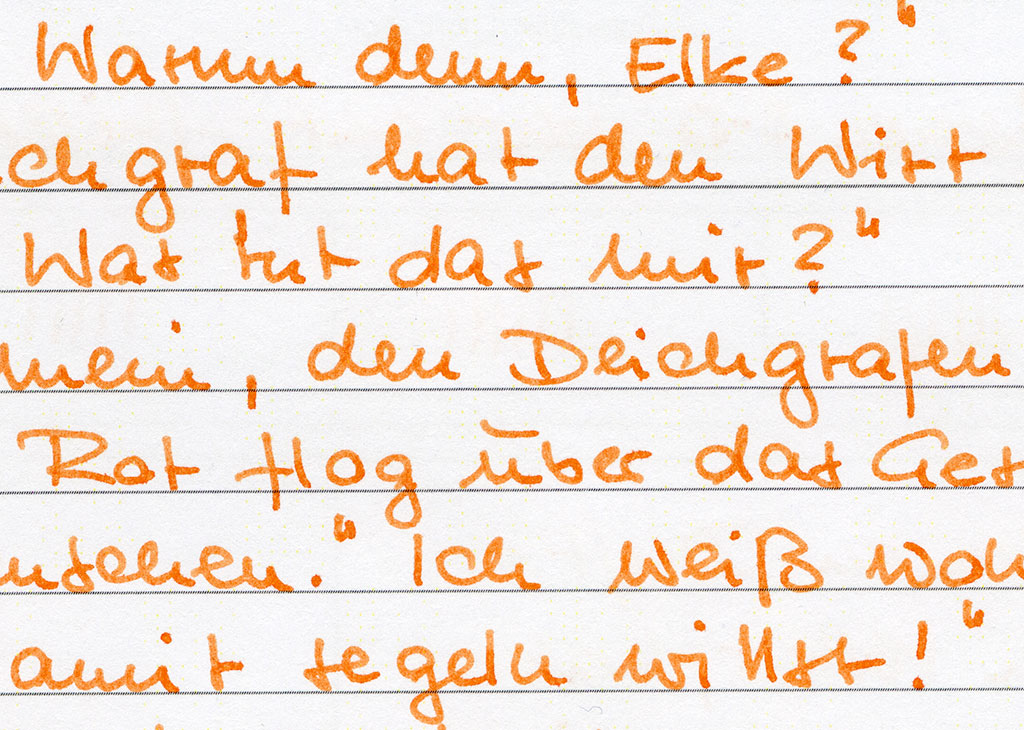 Warum denn, Elke?“
chgraf hat den Wirt
Was tut das mir?“
mein, den Deichgrafen
Rot flog über das Ges
nsehen.“ Ich weiß woh
amit segeln willst!“